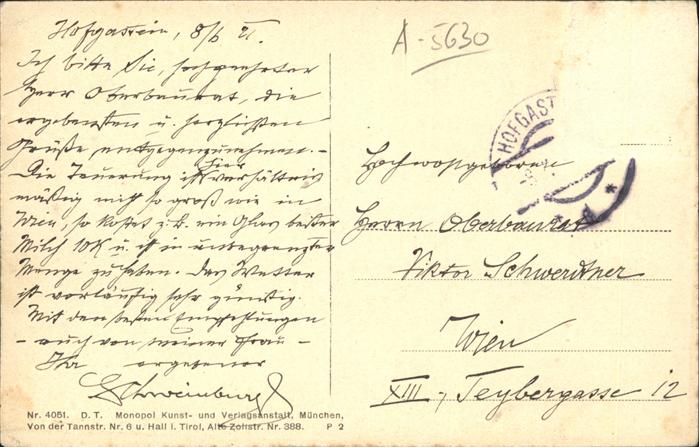 Hofgastein, 8/6 21.
Ich bitte Sie, hochgeehrter
Herr Oberbaurat, die
ergebensten u. herzlichsten
Grüße, entgegenzunehmen. –
Die Teuerung ist hier verhältnis
mäßig nicht so groß wie in
Wien, so kostet z. b. ein Glas bester
Milch 10K u. ist in unbegrenzter
Menge zu haben. Das Wetter
ist vorläufig sehr günstig.
Mit den besten Empfehlungen
– auch von meiner Frau –
Ihr ergebener
Schweinburg
Nr. 4051. D. T. Monopol Kunst- und Verlagsanstalt, München,
Von der Tannstr. Nr. 6 u. Hall i. Tirol, Alte Zollstr. Nr. 388. P 2
A-5630
HOFGAST
Hochwohlgeboren
Herrn Oberbaurat
Viktor Schwerdtner
Wien
XIII, Teybergasse 12